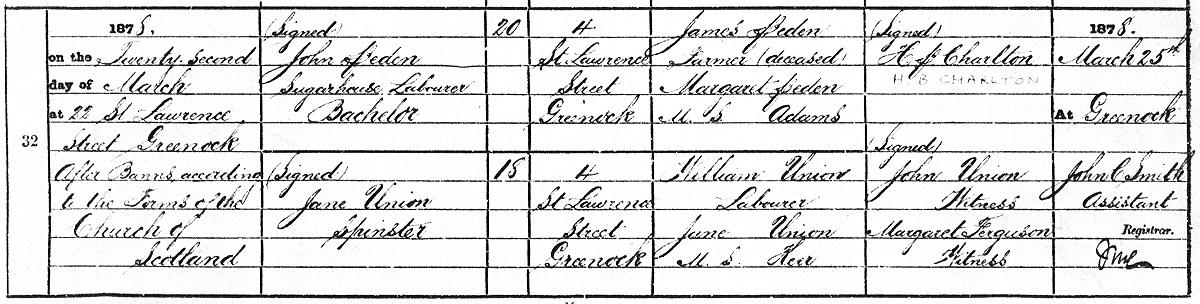 32
1878.
on the Twenty-second
day of March
at 22 St Lawrence
Street Greenock
After Banns, according
to the Forms of the
Church of
Scotland
(Signed)
John
Sugarhouse Labourer
Bachelor
(Signed)
Jane Union
Spinster
20
18
4
St Lawrence
Street
Greenock
4
St Lawrence
Street
Greenock
James
Farmer (deceased)
Margaret
M. S. Adams
William Union
Labourer
Jane Union
M. S. Keir
(Signed)
H. Charlton
H B CHARLTON
(Signed)
John Union
Witness
Margaret Ferguson
Witness
1878.
March 25th
At Greenock
John C Smith
Assistant
Registrar.